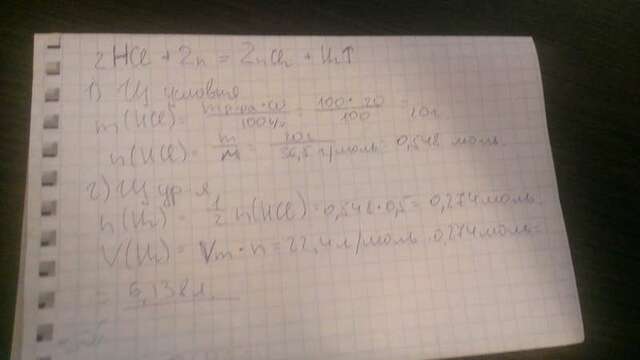 2HCl + Zn = ZnCl2 + H2↑
1) Из условия
m(HCl) = mр-ра·ω / 100% = 100·20 / 100 = 20г
n(HCl) = m / M = 20г / 36,5 г/моль = 0,548 моль.
2) Из ур-я
n(H2) = 1/2 n(HCl) = 0,548·0,5 = 0,274 моль.
V(H2) = Vm·n = 22,4 л/моль·0,274 моль =
= 6,138 л.